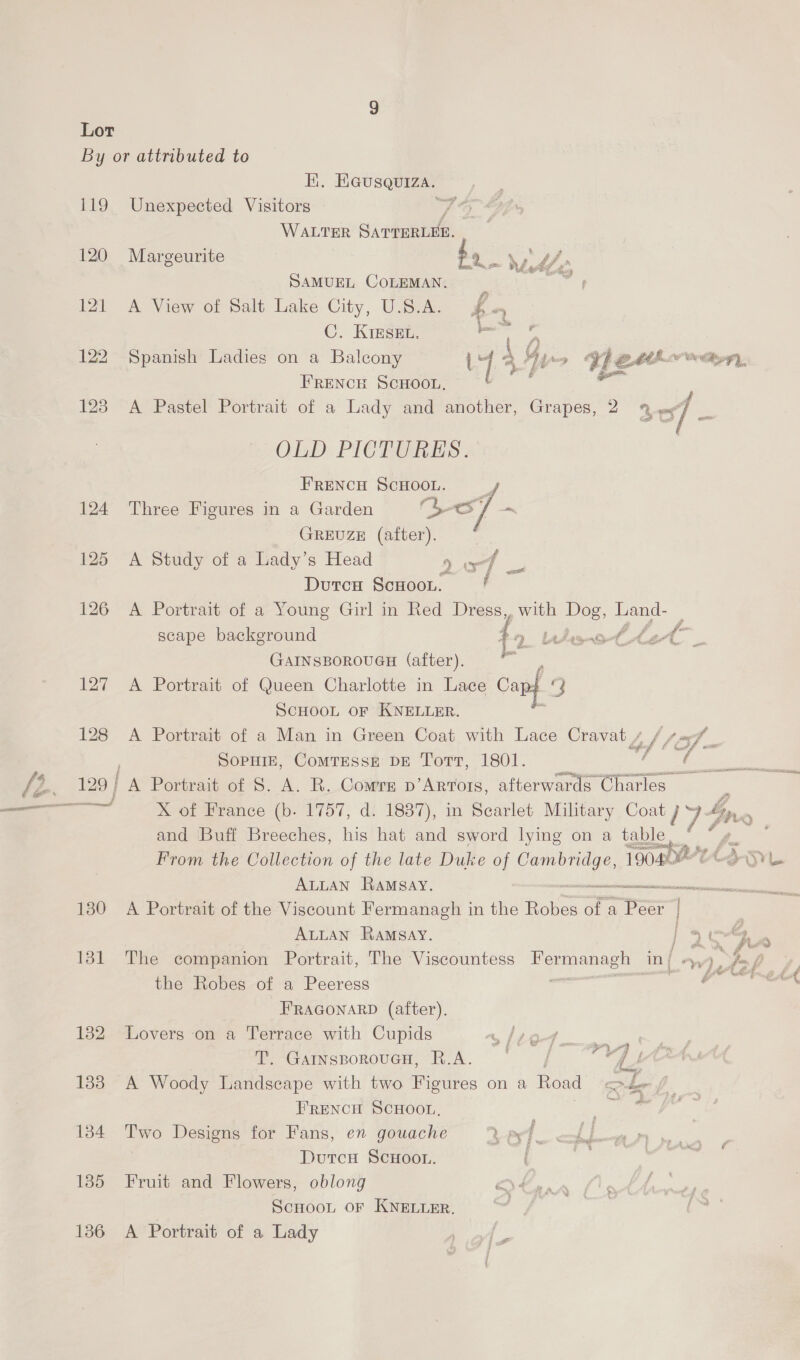 9
Lot
By or attributed to
E. Eausquiza.
119 Unexpected Visitors
Walter Satterlee.
120 Margeurite
Samuel Coleman.
121 A View of Salt Lake City, U.S.A.
C. Kiesel.
122 Spanish Ladies on a Balcony
French School.
123 A Pastel Portrait of a Lady and another, Grapes, 2
OLD PICTURES.
French School.
124 Three Figures in a Garden
Greuze (after).
125 A Study of a Lady's Head
Dutch School.
126 A Portrait of a Young Girl in Red Dress, with Dog, Land-
scape background
Gainsborough (after).
127 A Portrait of Queen Charlotte in Lace Cap
School of Kneller.
128 A Portrait of a Man in Green Coat with Lace Cravat
Sophie, Comtesse de Tott, 1801.
129 A Portrait of S. A. R. Comte d'Artois, afterwards Charles
X of France (b. 1757, d. 1837), in Scarlet Military Coat
and Buff Breeches, his hat and sword lying on a table
From the Collection of the late Duke of Cambridge, 1904
Allan Ramsay.
130 A Portrait of the Viscount Fermanagh in the Robes of a Peer
Allan Ramsay.
131 The companion Portrait, The Viscountess Fermanagh in
the Robes of a Peeress
Fragonard (after).
132 Lovers on a Terrace with Cupids
T. Gainsborough, R.A.
133 A Woody Landscape with two Figures on a Road
French School.
134 Two Designs for Fans, en gouache
Dutch School.
135 Fruit and Flowers, oblong
School of Kneller.
136 A Portrait of a Lady